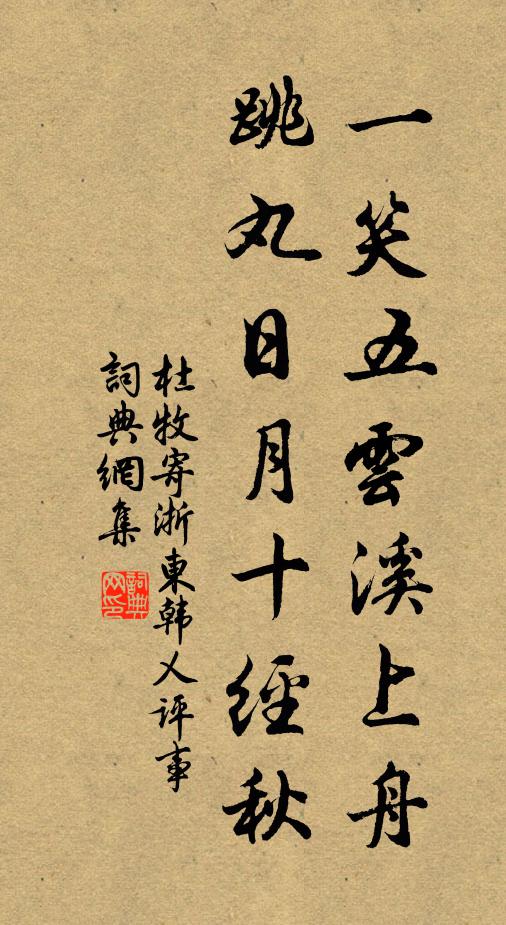 一笑五雲溪上舟
跳丸日月十經秋
杜牧寄浙東韓乂評事
詞典網集
詞典网印